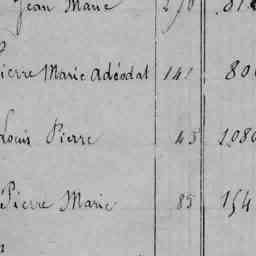 Jean Marie 270 81
Pierre Marie Adéodat 141 80
Louis Pierre 43 1080
Pierre Marie 85 154